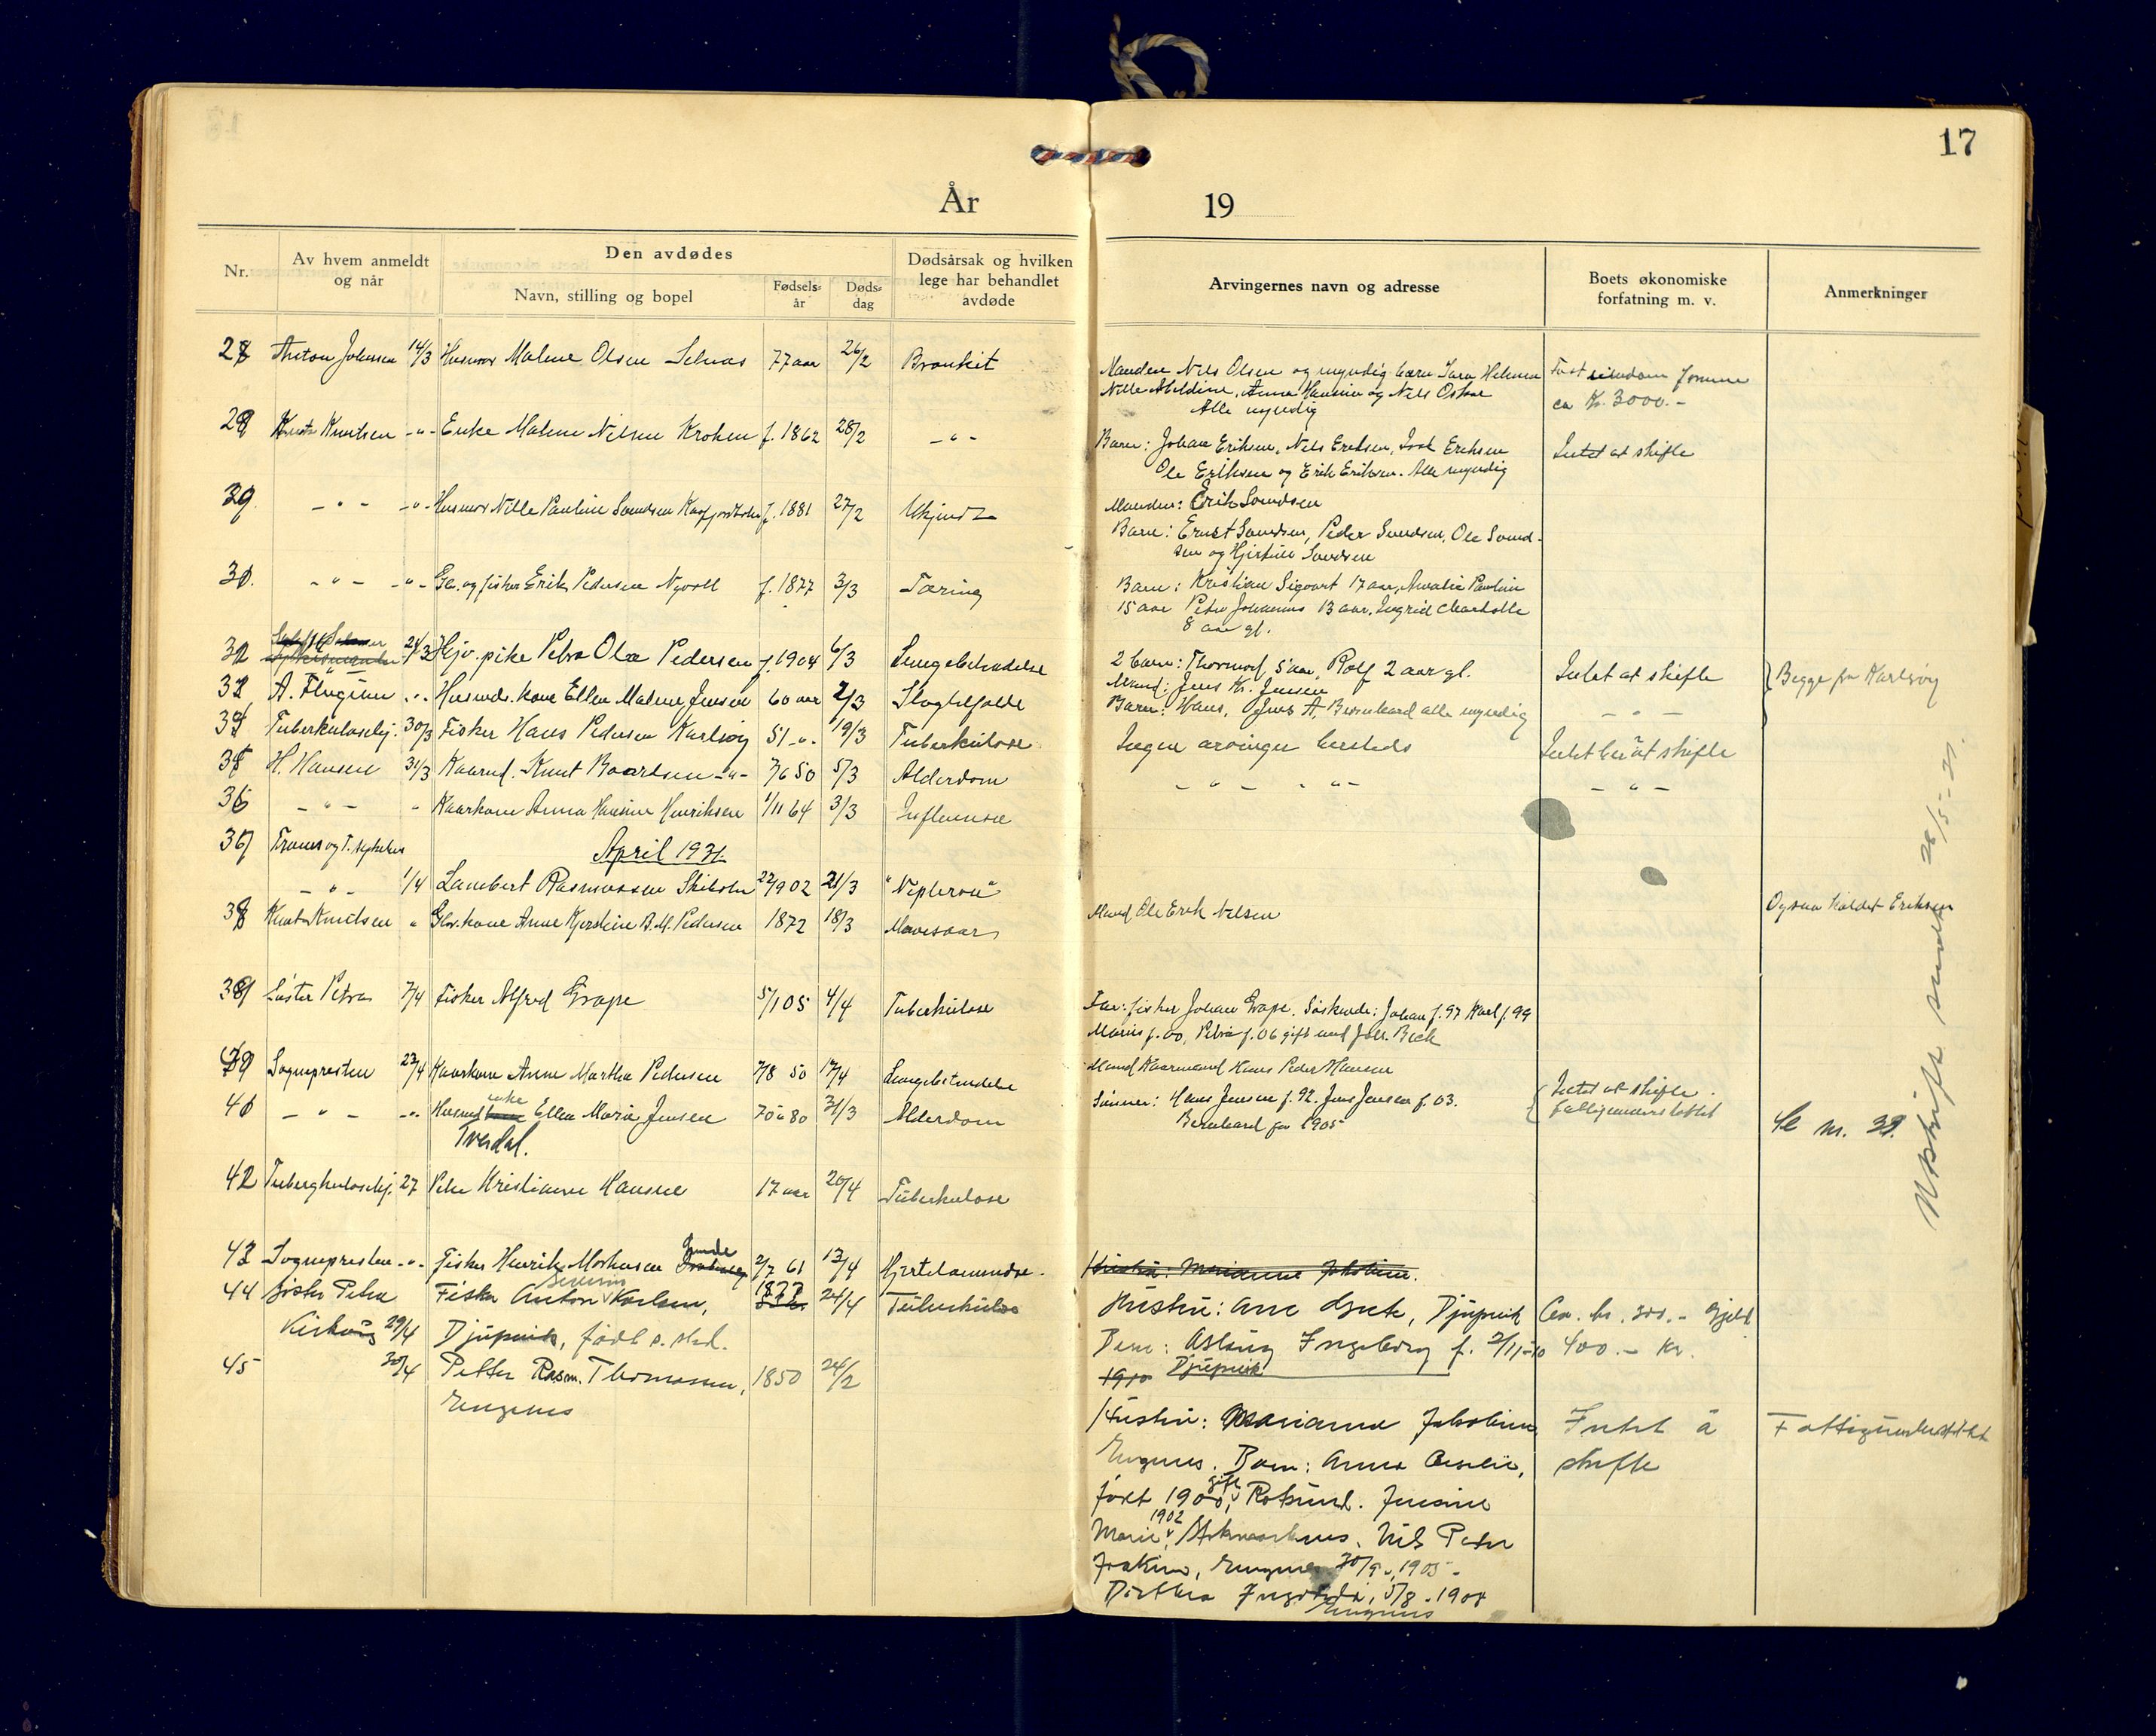 17
År 19
Nr.
Av hvem anmeldt og når
Den avdødes
Navn, stilling og bopel
Fødselsår
Dødsdag
Dødsårsak og hvilken lege har behandlet avdøde
Arvingernes navn og adresse
Boets økonomiske forfatning m. v.
Anmerkninger
28 Anton Johnsen 14/3 Husmor Malene Olsen Selnæs 77 aar 26/2 Bronkit
Manden Nils Olsen og myndig barn Sara Helmine
Nille Abeldine, Anna Hansine og Nils Oskar
Alle myndig
Fast eiendom
ca Kr. 3000.-
29 Knut Knutsen -"- Enke Malene Nilsen Kroken f. 1862 28/2 -"-
Barn: Johan Eriksen, Nils Eriksen, Isak Eriksen
Ole Eriksen og Erik Eriksen. Alle myndig
Intet at skifte
30 -"- -"- Husmor Nille Pauline Svendsen f. 1881 27/2 Ukjendt
Manden: Erik Svendsen
Barn: Ernst Svendsen, Peder Svendsen, Ole Svend-
sen og Hjertine Svendsen
31. -"- -"- Gb. og fisker Erik Pedersen Nyvoll f. 1877 3/3 Tæring
Barn: Kristian Sigvart 17 aar, Amalie Pauline
15 aar Peter Johannes 13 aar. Ingrid Charlotte
8 aar gl.
32 24/3 Hjv. pike Petra Olea Pedersen f. 1904 6/3 Lungebetændelse
2 barn: Thormod, 5 aar, Rolf 2 aar gl.
Intet at skifte
Begge fra Karlsøy
A. Flugum -"- Husmds. kone Ellen Malene Jensen 60 aar 2/3 Slagtilfælde
Mand: Jens Kr. Jensen
Barn: Hans, Jens A, Bernhard alle myndig
-"-
34 Tuberkulosehj. 30/3 Fisker Hans Pedersen Karlsøy 51 -"- 19/3 Tuberkulose
Ingen arvinger hersteds
Intet her at skifte
35 H. Hansen 31/3 Kaarmd. Knut Baardsen -"- 7/6 50 5/3 Alderdom
-"- -"-
-"-
36 -"- " Kaarkone Anna Hansine Henriksen 1/11 64 3/3 Influensa
37 Troms og T. sykehus
April 1931.
-"- 1/4 Lambert Rasmussen Skibotn 22/9 02 21/3 "Nephron"
38 Knut Knutsen " Gbr. kone Anne Kjerstine B. M. Pedersen 1872 18/3 Mavesaar
Mand Ole Erik Nilsen
Ogsaa kaldet Eriksen
39 Søster Petra 7/4 Fisker Alfred Grape 5/1 05 4/4 Tuberkulose
Far: fisker Johan Grape. Søskende: Johan f. 97 Karl f. 99
Marius f. 00, Petra f. 06 gift med Joh. Beck
Sognepresten 23/4 Kaarkone Anne Martha Pedersen 7/8 50 17/4 Lungebetændelse
Mand Kaarmand Hans Peder Hansen
41 -"- -"- Husmds enke Ellen Maria Jensen 70 a 80 31/3 Alderdom
Tverdal.
Sønner: Hans Jensen f. 92. Jens Jensen f. 03.
Bernhard f. 1905
Intet at skifte.
fattigunderstøttet
Se nr. 33.
42 Tuberkulosehj. 27 Peter Kristiansen Hansen 17 aar 20/4 Tuberkulose
43 Sognepresten -"- Fisker Henrik Mortensen Grunde 2/7 61 13/4 Hjertelammelse.
Hustru: Marianne Jakobine.
44 Søster Petra Fisker Anton Severin Karlsen, 1877 24/4 Tuberkulose
Kirkøy 29/4 Djupvik, født s. sted.
Hustru: Ane Gurk, Djupvik
Barn: Aslaug Ingeborg f. 2/11-10
1910 Djupvik
Ca. kr. 300.- Gjeld
400.- kr.
45 30/4 Petter Rasm. Thomassen, 1850 24/2
Engenes
Hustru: Marianna Jakobine
Engenes. Barn: Anna Amalie,
født 1900, gift Rotsund. Jensine
Marie, 1902 Nils Peder
Joakim, Engenes 30/9 1905-
Dorthea 5/8 - 1908
Engenes
Intet å
skifte
Fattigunderstøttet
Utskift sendt 26/5-31.